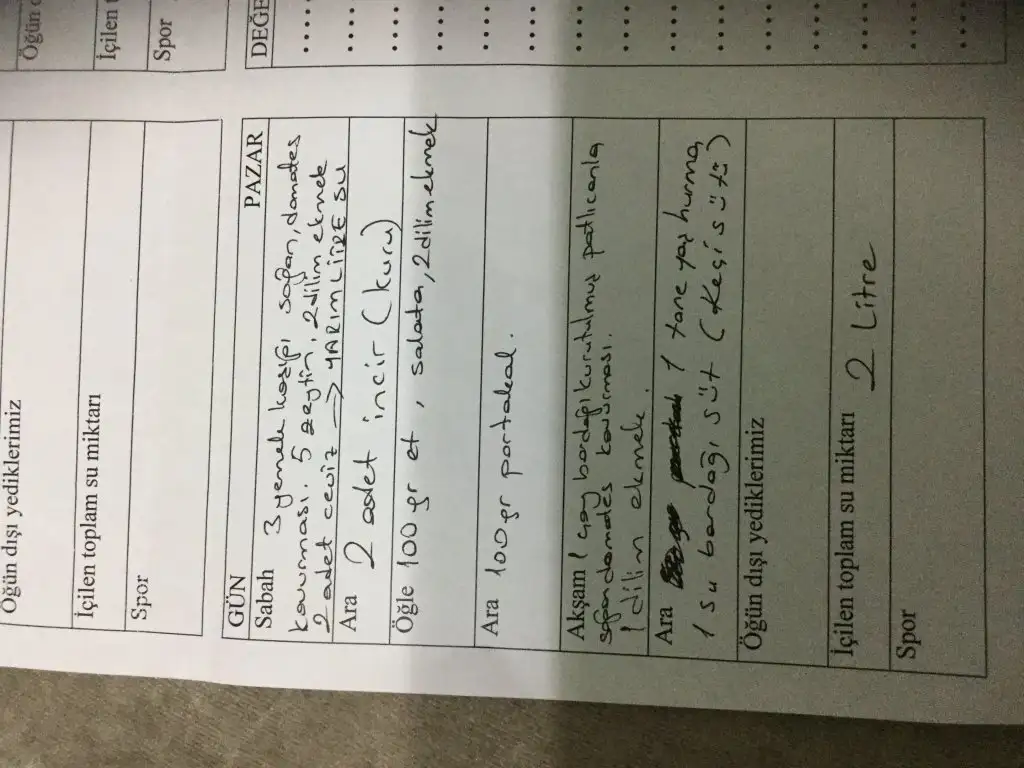 Öğün dışı yediklerimiz
İçilen toplam su miktarı
Spor
Öğün
İçilen
Spor
DEĞE
GÜN PAZAR
Sabah 3 yemek kaşığı soğan, domates
kavurması. 5 zeytin, 2 dilim ekmek
2 adet ceviz → YARIM LİTRE SU
Ara 2 adet incir (kuru)
Öğle 100 gr et, salata, 2 dilim ekmek
Ara 100 gr portakal.
Akşam 1 çay bardağı kurutulmuş patlıcanla
soğan domates kavurması.
1 dilim ekmek.
Ara 1 tane yaş hurma,
1 su bardağı süt (Keçi sütü)
Öğün dışı yediklerimiz
İçilen toplam su miktarı 2 Litre
Spor